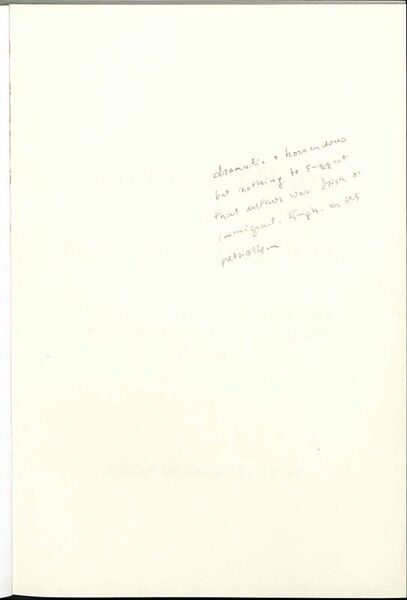 dramatic + horrendous
but nothing to suggest
that author was Irish or
immigrant. Emph. on US
patriotism